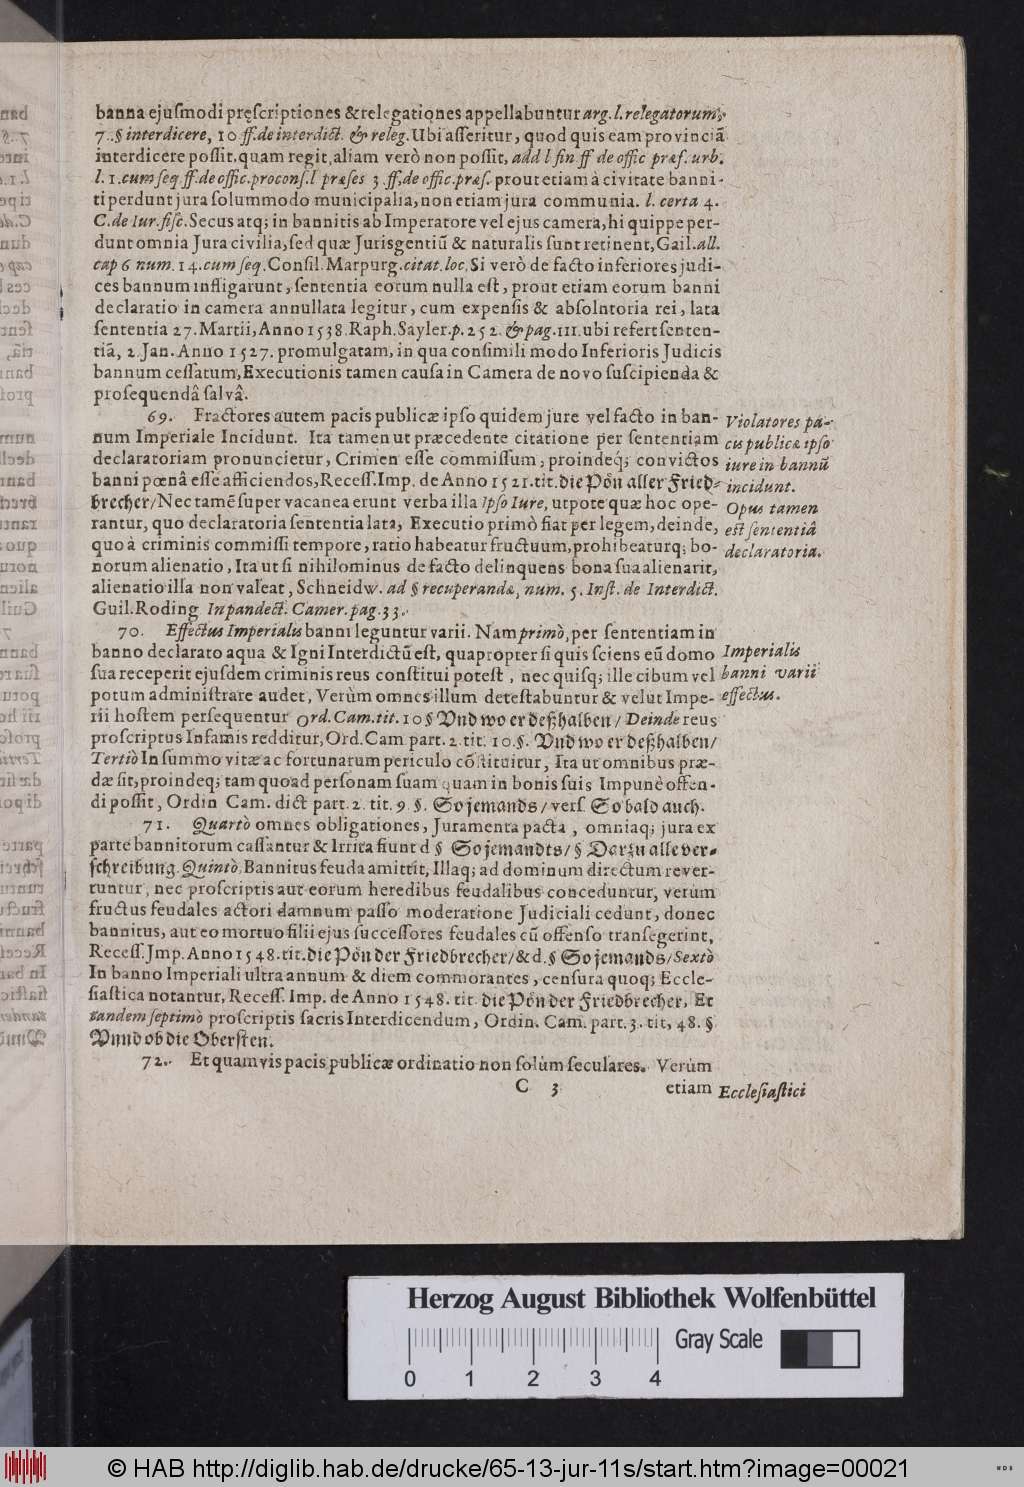 banna ejuſmodi pręſcriptiones & relegationes appellabuntur arg. l. relegatorum,
7.. § interdicere, 10 ff. de interdict. & releg. Ubi aſſeritur, quod quis eam provinciã
interdicere poſſit, quam regit, aliam verò non poſſit, add l fin ff de offic præſ. urb.
l. 1. cum ſeq ff. de offic. proconſ. l præſes 3 ff, de offic. præſ. prout etiam à civitate banni-
ti perdunt jura ſolummodo municipalia, non etiam jura communia. l. certa 4.
C. de Iur. fiſc. Secus atq; in bannitis ab Imperatore vel ejus camera, hi quippe per-
dunt omnia Jura civilia, ſed quæ Juris gentiũ & naturalis ſunt retinent, Gail. all.
cap 6 num. 14. cum ſeq. Conſil. Marpurg. citat. loc. Si verò de facto inferiores judi-
ces bannum infligarunt, ſententia eorum nulla eſt, prout etiam eorum banni
declaratio in camera annullata legitur, cum expenſis & abſolntoria rei, lata
ſententia 27. Martii, Anno 1538. Raph. Sayler. p. 252. & pag. 111. ubi refert ſenten-
tiã, 2. Jan. Anno 1527. promulgatam, in qua conſimili modo Inferioris Judicis
bannum ceſſatum, Executionis tamen cauſa in Camera de novo ſuſcipienda &
proſequendâ ſalvâ.
69. Fractores autem pacis publicæ ipſo quidem jure vel facto in ban-
num Imperiale Incidunt. Ita tamen ut præcedente citatione per ſententiam
declaratoriam pronuncietur, Crimen eſſe commiſſum, proindeq; convictos
banni pœnâ eſſe afficiendos, Receſſ. Imp. de Anno 1521. tit. die Pön aller Fried-
brecher/ Nec tamẽ ſuper vacanea erunt verba illa Ipſo Iure, utpote quæ hoc ope-
rantur, quo declaratoria ſententia lata, Executio primò fiat per legem, deinde,
quo à criminis commiſſi tempore, ratio habeatur fructuum, prohibeaturq; bo-
norum alienatio, Ita ut ſi nihilominus de facto delinquens bona ſua alienarit,
alienatio illa non valeat, Schneidw. ad § recuperandæ, num. 5. Inſt. de Interdict.
Guil. Roding In pandect. Camer. pag. 33.
Violatores pa-
cis publicæ ipſo
iure in bannũ
incidunt.
Opus tamen
eſt ſententiâ
declaratoria.
70. Effectus Imperialis banni leguntur varii. Nam primò, per ſententiam in
banno declarato aqua & Igni Interdictũ eſt, quapropter ſi quis ſciens eũ domo
ſua receperit ejuſdem criminis reus conſtitui poteſt, nec quiſq; ille cibum vel
potum adminiſtrare audet, Verùm omnes illum deteſtabuntur & velut Impe-
rii hoſtem perſequentur Ord. Cam. tit. 10 § Vnd wo er deßhalben/ Deinde reus
proſcriptus Infamis redditur, Ord. Cam part. 2. tit. 10. §. Vnd wo er deßhalben/
Tertiò In ſummo vitæ ac fortunarum periculo cõſtituitur, Ita ut omnibus præ-
dæ ſit, proindeq; tam quoad perſonam ſuam quam in bonis ſuis Impunè offen-
di poſſit, Ordin Cam. dict part. 2. tit. 9. §. So jemands/ verſ. So bald auch.
Imperialis
banni varii
effectus.
71. Quartò omnes obligationes, Juramenta pacta, omniaq; jura ex
parte bannitorum caſſantur & Irrita fiunt d § So jemandts/ § Darzu alle ver-
ſchreibung. Quintò, Bannitus feuda amittit, Illaq; ad dominum directum rever-
runtur, nec proſcriptis aut eorum heredibus feudalibus conceduntur, verùm
fructus feudales actori damnum paſſo moderatione Judiciali cedunt, donec
bannitus, aut eo mortuo filii ejus ſucceſſores feudales cũ offenſo tranſegerint,
Receſſ. Jmp. Anno 1548. tit. die Pön der Friedbrecher/ & d. § So jemands/ Sextò
In banno Imperiali ultra annum & diem commorantes, cenſura quoq; Eccle-
ſiaſtica notantur, Receſſ. Imp. de Anno 1548. tit. die Pön der Friedbrecher, Et
tandem ſeptimò proſcriptis ſacris Interdicendum, Ordin. Cam. part. 3. tit, 48. §
Vnnd ob die Oberſten.
72. Et quamvis pacis publicæ ordinatio non ſolùm ſeculares. Verùm
C 3 etiam
Eccleſiaſtici
Herzog August Bibliothek Wolfenbüttel
Gray Scale
0 1 2 3 4
© HAB http://diglib.hab.de/drucke/65-13-jur-11s/start.htm?image=00021